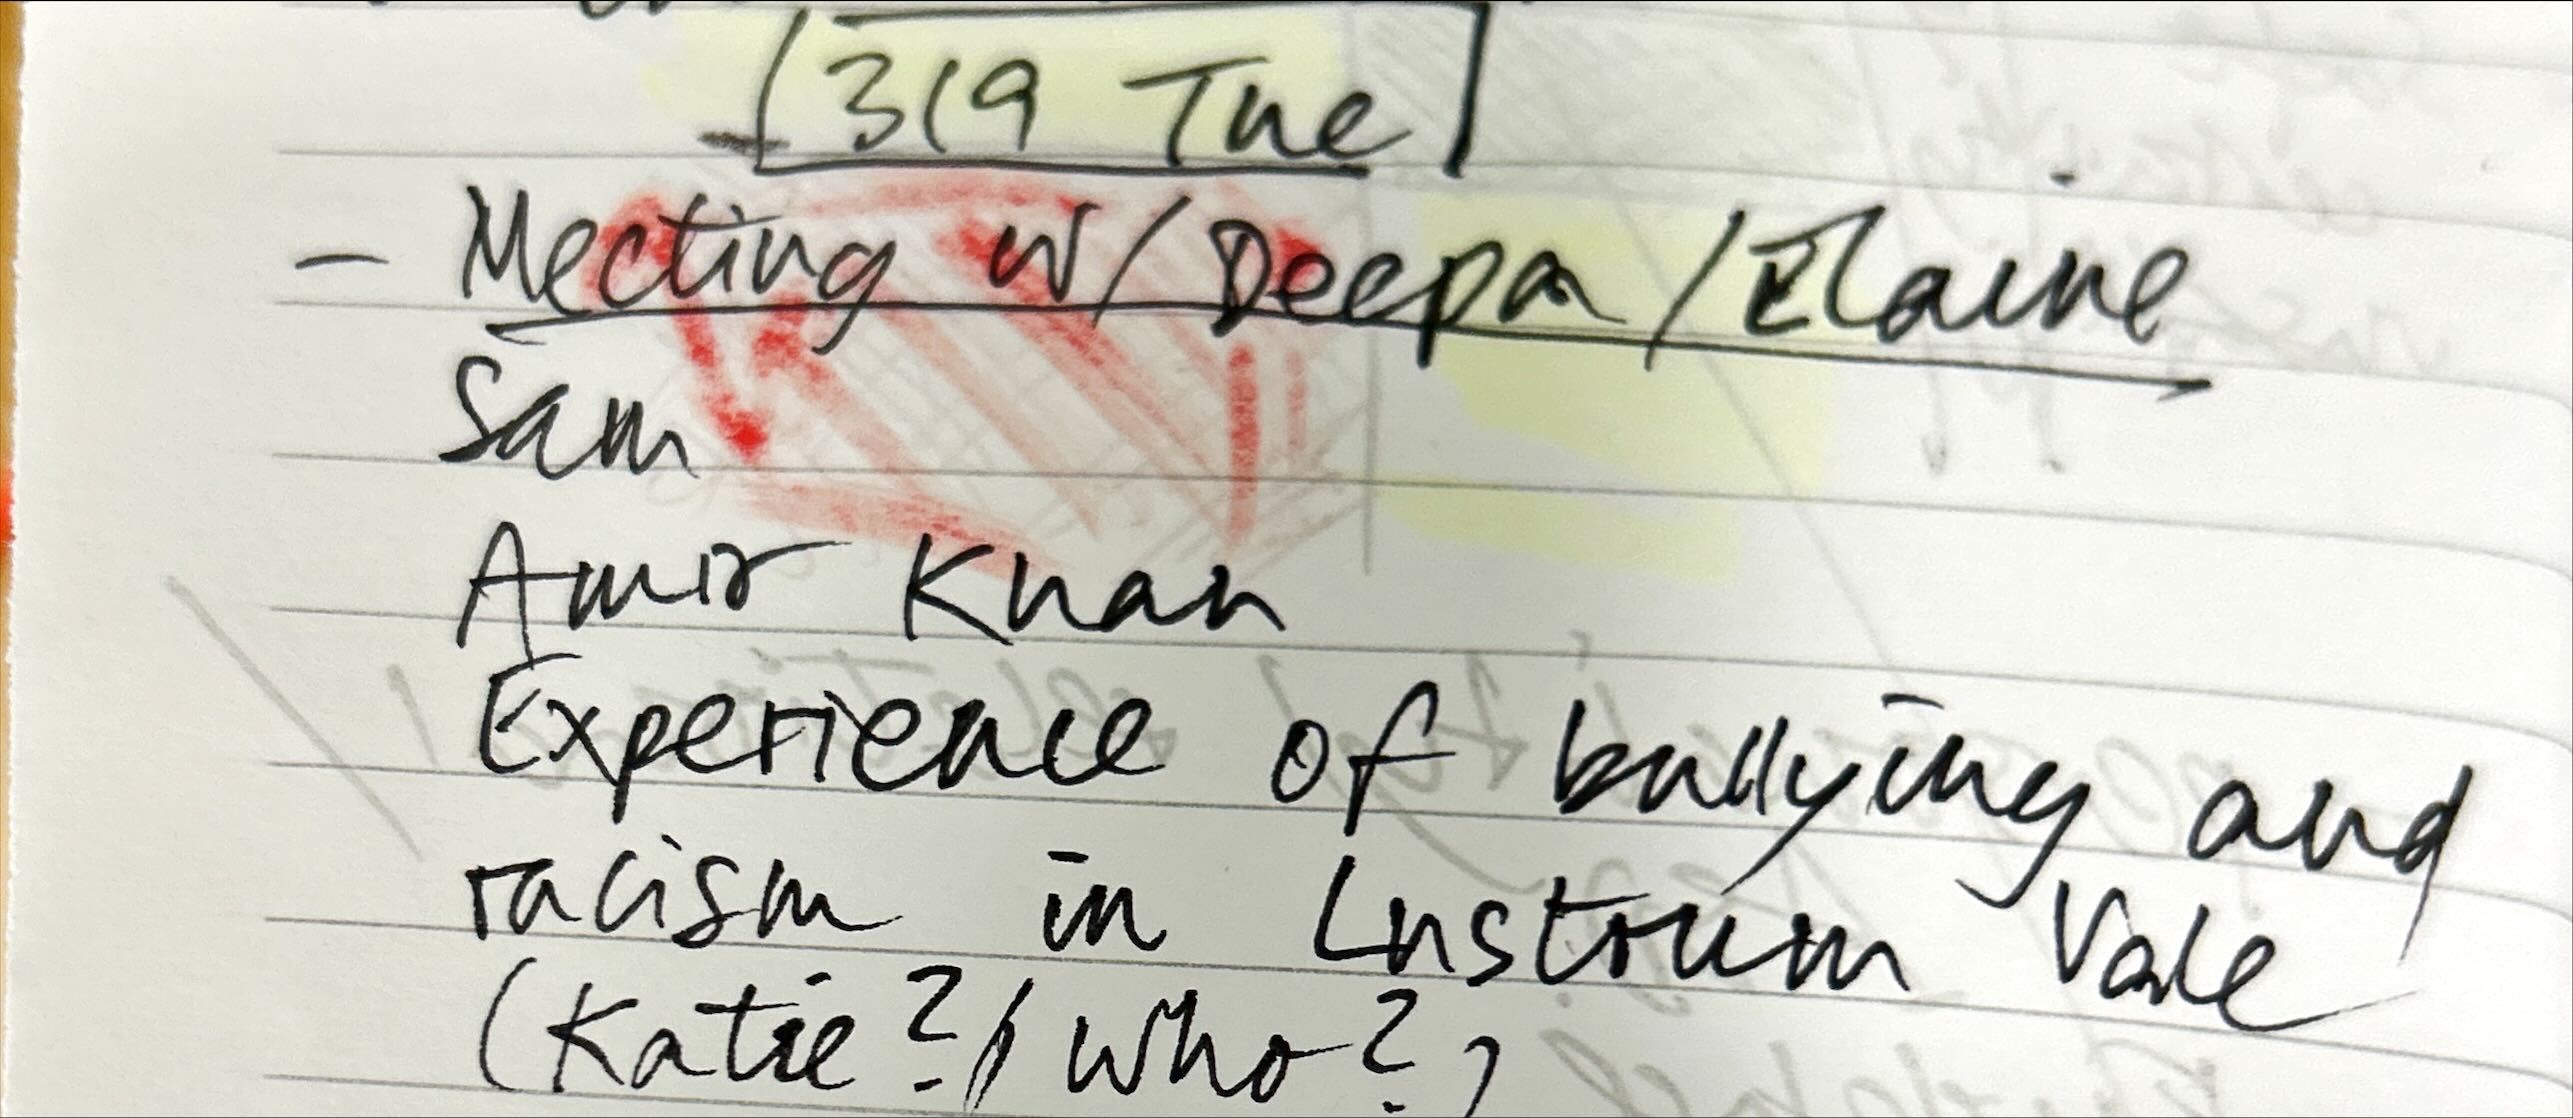 3/9 Tue
- Meeting w/ Deepa / Elaine
Sam
Amir Khan
Experience of bullying and
racism in Lustrum Vale
(Katie? / Who?)